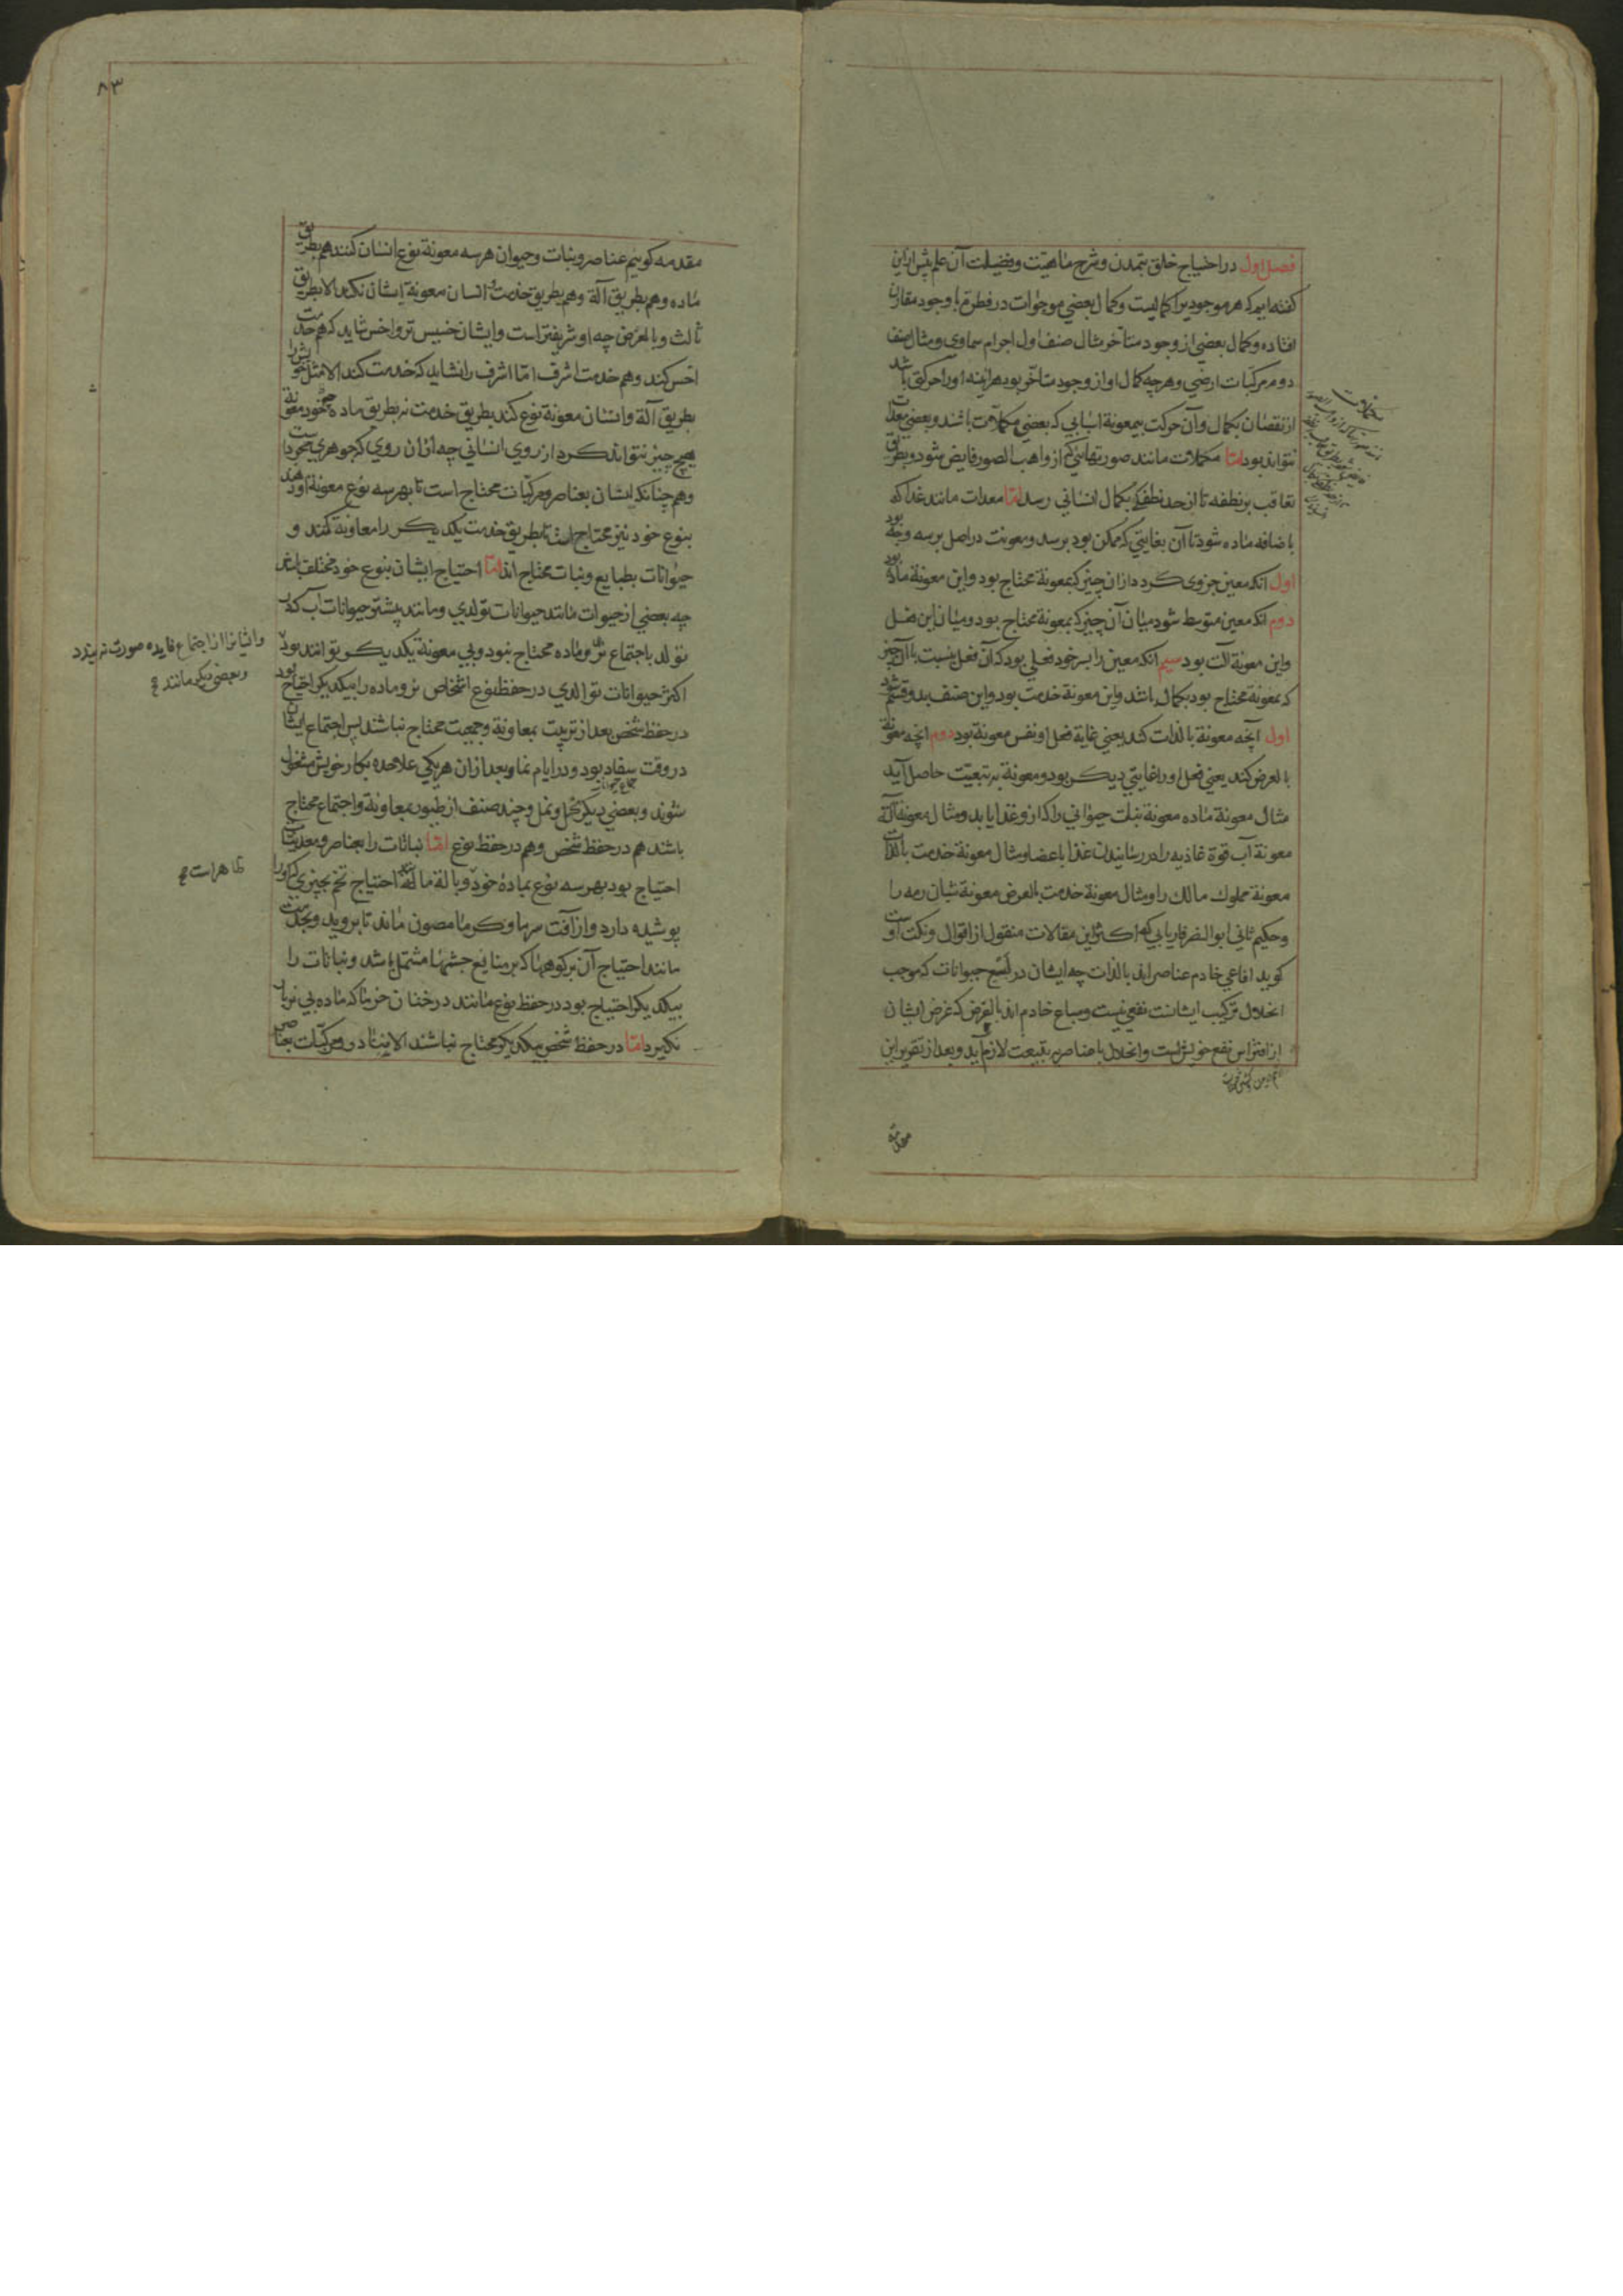 فصل اول در احتیاج خلق بتمدن و شرح ماهیّت و فضیلت آن علم پیش ازین
کفته ایم که هر موجودیرا کمالیست و کمال بعضی موجوات در فطرت با وجود مقارن
افتاده و کمال بعضی از وجود متأخر مثال صنف اول اجرام سماوی و مثال صنف
دوم مرکّبات ارضی و هرچه کمال او از وجود متأخر بود هراینه او را حرکتی باشد
از نقصان بکمال و آن حرکت بیمعونة اسبابی که بعضی مکملات باشند و بعضی معدات
نتواند بود امّا مکملات مانند صورتهائی که از واهب الصور فایض شود و بطریق
تعاقب بر نطفه تا از حد نطفکی بکمال انسانی رسد امّا معدات مانند غدا که
باضافه ماده شود تا آن بغایتی که ممکن بود برسد و معونت در اصل بر سه وجه بود
اول انکه معین جزوی کردد ازان چیز که بمعونة محتاج بود و این معونة ماده بود
دوم انکه معین متوسط شود میان آن چیز که بمعونة محتاج بود و میان این فعل
و این معونة الت بود سیم انکه معین را بسر خود فعلی بود که آن فعل بنسبت با آن چیز
که بمعونة محتاج بود بکمال باشد و این معونة خدمت بود و این صنف بدو قسم شود
اول آنچه معونة بالذات کند یعنی غایة فعل او نفس معونة بود دوم انچه معونة
بالعرض کند یعنی فعل او را غایتی دیکر بود و معونة بتبعیّت حاصل آید
مثال معونة ماده معونة نبات حیوانی را که ازو غذا یابد و مثال معونة آلة
معونة آب قوة غاذیه را در رسانیدن غذا باعضا و مثال معونة خدمت بالذات
معونة مملوک مالک را و مثال معونة خدمت بالعرض معونة شبان رمه را
و حکیم ثانی ابو النصر فاریابی که اکثر این مقالات منقول از اقوال و نکت اوست
کوید افاعی خادم عناصر اند بالذات چه ایشان در لسع حیوانات که موجب
انحلال ترکیب ایشانست نفعی نیست و سباع خادم اند بالعرض که غرض ایشان
از افتراس نفع خویش است و انحلال با عناصر بتبعیت لازم آید و بعد از تقریر این
مقدمه
۸۳
مقدمه کوییم عناصر و نبات و حیوان هر سه معونة نوع انسان کنند هم بطریق
ماده و هم بطریق آلة و هم بطریق خدمت و انسان معونة ایشان نکند الا بطریق
ثالث و بالعرض چه او شریفتر است و ایشان خسیس تر و اخس شاید که هم خدمت
اخس کند و هم خدمت اشرف امّا اشرف را نشاید که خدمت کند الا مثل خویش را
بطریق آلة و انسان معونة نوع کند بطریق خدمت نه بطریق ماده معونة
هیچ چیز نتواند کرد از روی انسانی چه ازان روی که جوهری مجرد است
و هم چنانکه انسان بعناصر و مرکّبات محتاج است تا بهر سه نوع معونة او دهند
بنوع خود نیز محتاج است تا بطریق خدمت یکدیکر را معاونة کنند و
حیوانات بطبایع و نبات محتاج اند امّا احتیاج ایشان بنوع خود مختلف باشد
چه بعضی از حیوات مانند حیوانات تولدی و مانند بیشتر حیوانات آب که در
تولد باجتماع نر و ماده محتاج نبود و بی معونة یکدیکر توانند بود
وایشانرا از اجتماع فایده صورت نه بندد
و بعضی دیکر مانند
اکثر حیوانات توالدی در حفظ نوع اشخاص نر و ماده را بیکدیکر احتیاج بود
در حفظ شخص بعد از تربیت بمعاونة و جمعیت محتاج نباشند پس اجتماع ایشان
در وقت سفاد بود و در ایام نما و بعد ازان هر یکی علاحده بکار خویش مشغول
شوند و بعضی دیکر نحل و نمل و چند صنف از طیور بمعاونة و اجتماع محتاج
باشند هم در حفظ شخص و هم در حفظ نوع امّا نباتات را بعناصر و معدنیات
احتیاج بود بهر سه نوع بمادة خود و بالة مانند احتیاج تخم بچیزی که او را
ظاهر است
پوشیده دارد و از آفت سرما و کرما مصون ماند تا بروید و بخدمت
مانند احتیاج آن برکوهها که بر منابع چشمها مشتمل باشد و نباتات را
بیکدیکر احتیاج بود در حفظ نوع مانند درختان خرما که ماده بی نر بار
نکیرد امّا در حفظ شخص بیکدیکر محتاج نباشند الا بنادر و مرکّبات بعناصر